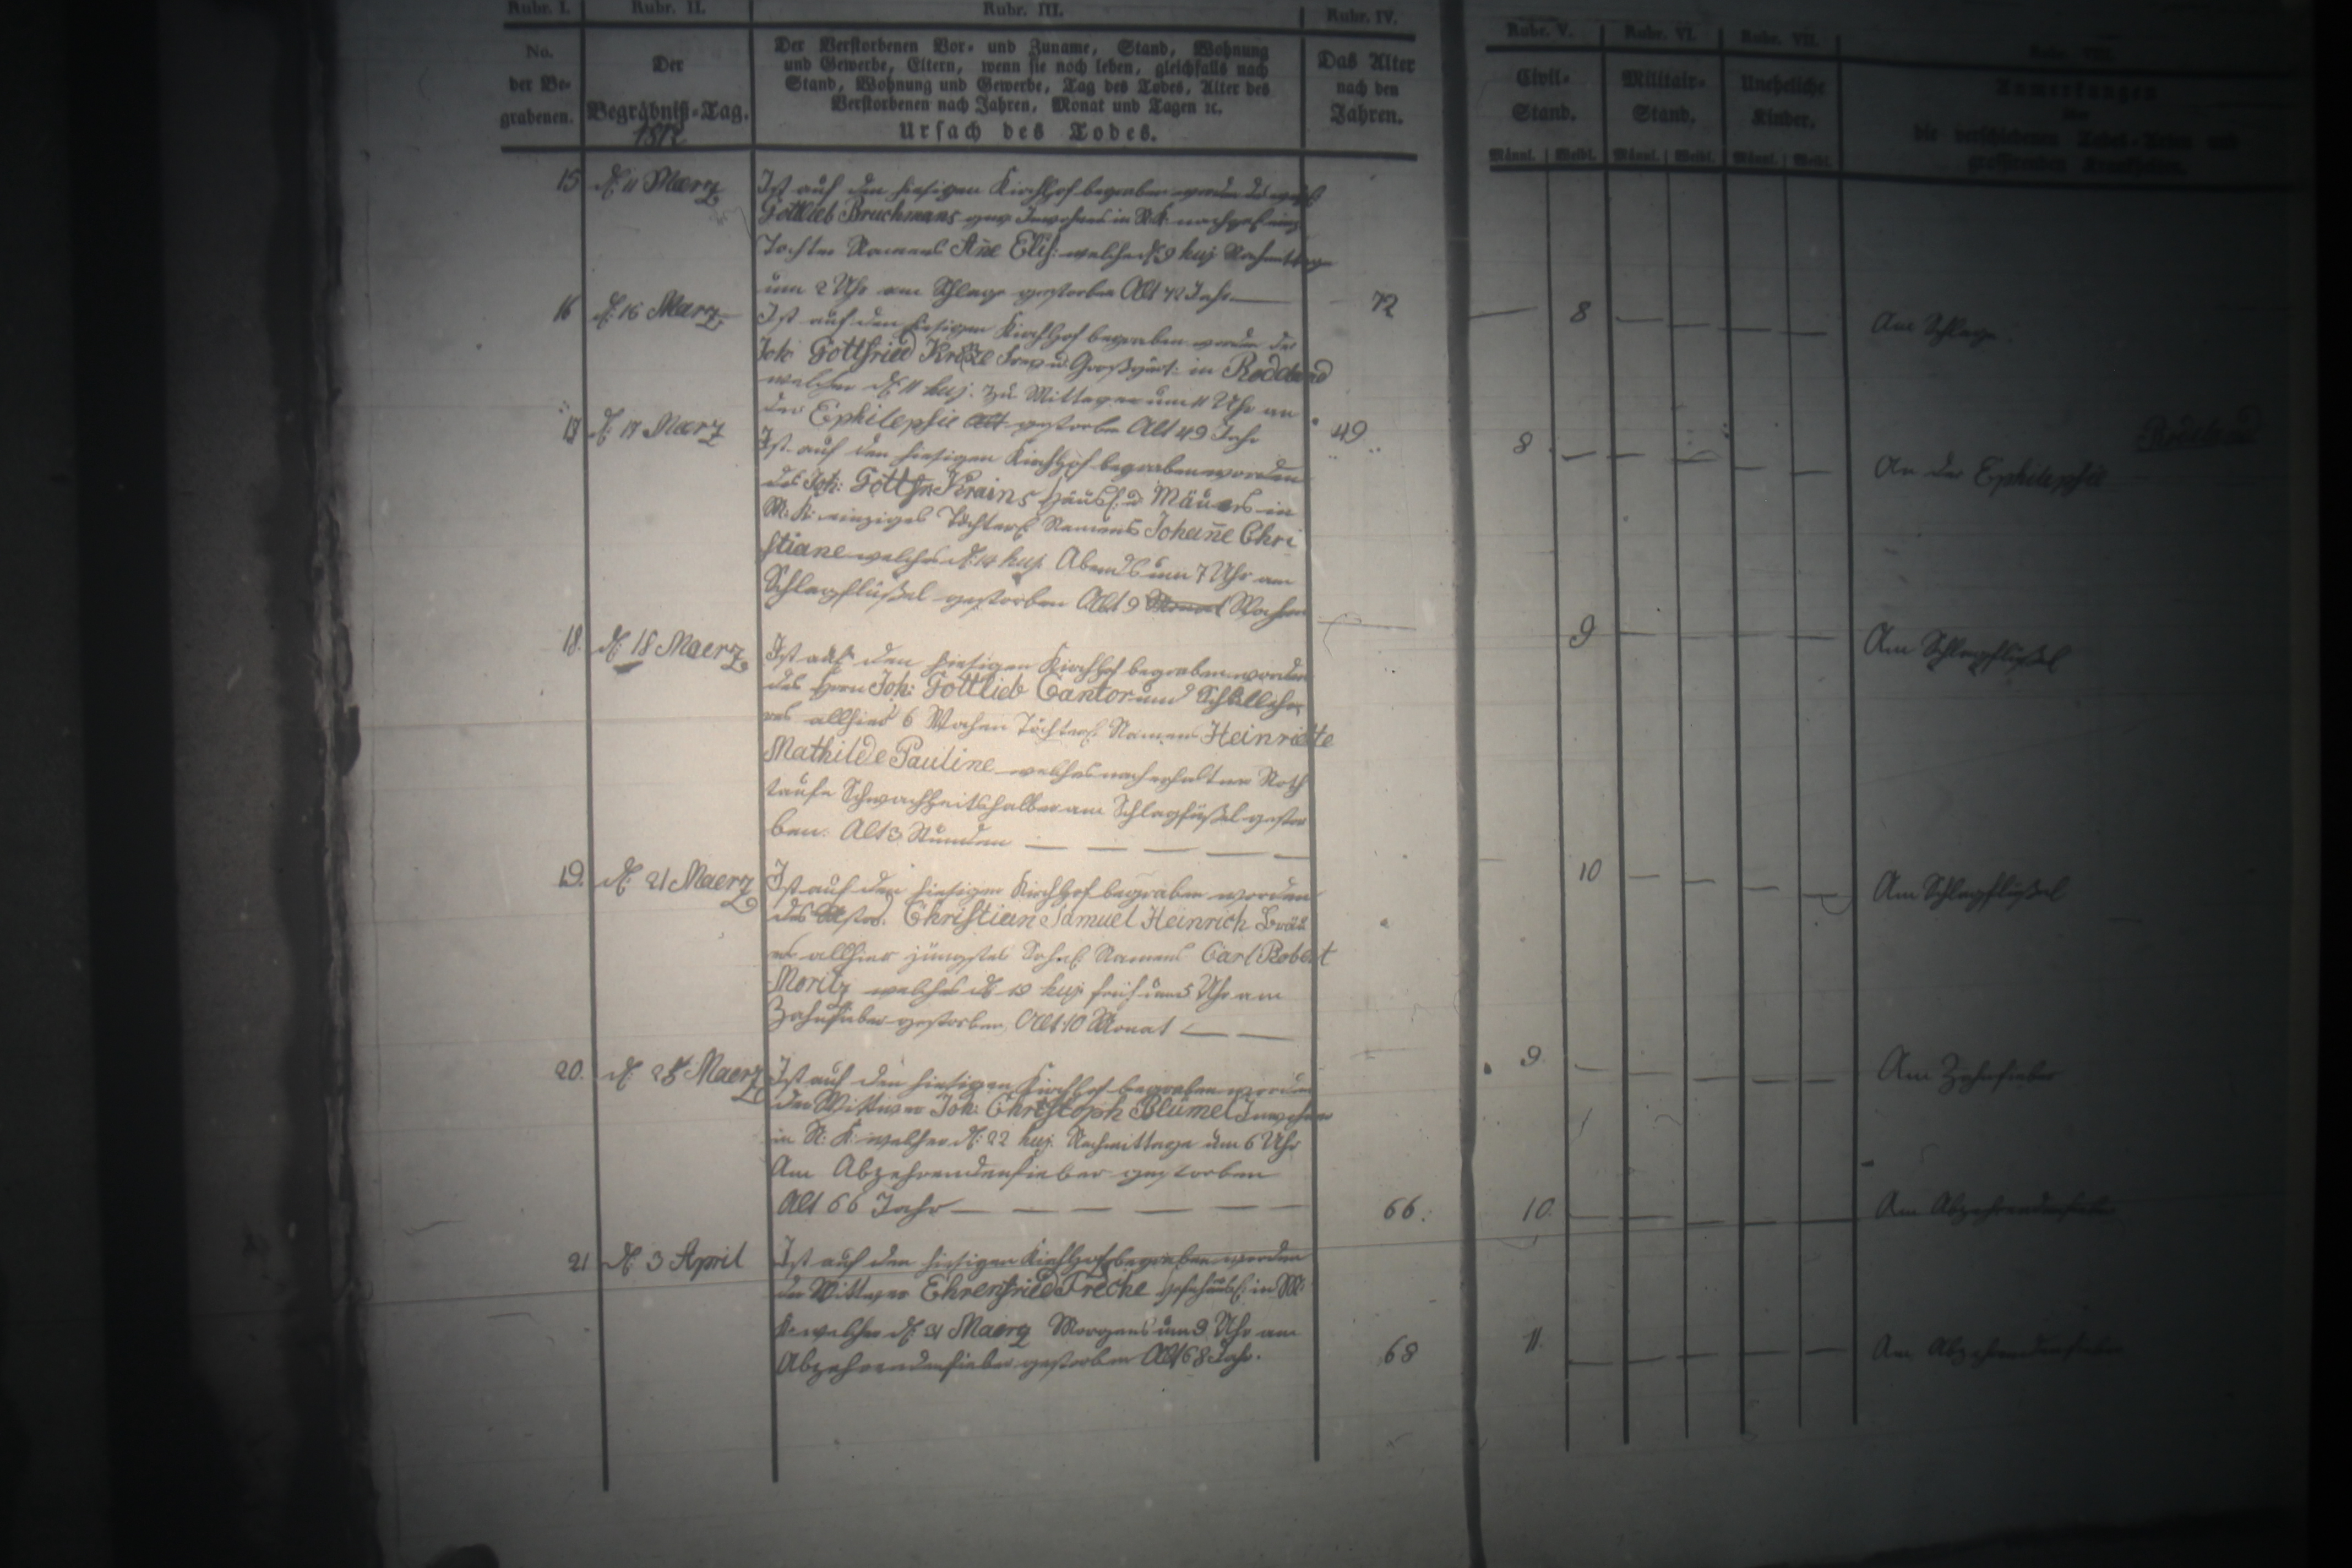 Rubr. I. Rubr. II. Rubr. III. Rubr. IV. Rubr. V. Rubr. VI. Rubr. VII. Rubr. VIII.
No. der Be- grabenen.
Der Begräbniß-Tag.
1812
Der Verstorbenen Vor- und Zuname, Stand, Wohnung
und Gewerbe, Eltern, wenn sie noch leben, gleichfalls nach
Stand, Wohnung und Gewerbe, Tag des Todes, Alter des
Verstorbenen nach Jahren, Monat und Tagen ꝛc.
Ursach des Todes.
Das Alter nach den Jahren.
Civil-Stand.
Militair-Stand.
Uneheliche Kinder.
Anmerkungen
die verschiedenen Todes-Arten und
grassirenden Krankheiten.
Männl. Weibl. Männl. Weibl. Männl. Weibl.
15 d. 11 Maerz Ist auf den hiesigen Kirchhof begraben worden des
Gottlieb Bruchmans gew Inwohners in N. K. nachgel.
Tochter Namens Añe Elis: welche d. 9 huj Nachmittags
um 2 Uhr am Schlage gestorben Alt 72 Jahr 72 8 Am Schlage.
16 d. 16 Maerz Ist auf den hiesigen Kirchhof begraben worden der
Joh: Gottfried in Rodeland
welcher d. 11 huj. zu Mittage um 11 Uhr an
der Ephilepsie gestorben Alt 49 Jahr 49 8 An der Ephilepsie Rodeland
17 d. 17 Maerz Ist auf den hiesigen Kirchhof begraben worden
des Joh: Gottfr Krains Häusl. u Mäuers in
N. K. einziges Töchterl Namens Johañe Chri
stiane welches d. 14 huj. Abends um 7 Uhr am
Schlagflüßel gestorben Alt 9 Monat Wochen 9 Am Schlagflüßel
18. d. 18 Maerz Ist auf den hiesigen Kirchhof begraben worden
des Herrn Joh: Gottlieb Cantor und Schulleh
res allhier 6 Wochen Töchterl Namens Heinriette
Mathilde Pauline welches nach erhaltner Noth
taufe Schwachheitshalber am Schlagflüßel gestor
ben. Alt 3 Stunden 10 Am Schlagflüßel
19. d. 21 Maerz Ist auf den hiesigen Kirchhof begraben worden
des Christian Samuel Heinrich
allhier jüngstes Söhnl Namens Carl Robert
Moritz welches d. 19 huj. früh um 5 Uhr am
Zahnfieber gestorben. Alt 10 Monat 9 Am Zahnfieber
20. d. 25 Maerz Ist auf den hiesigen Kirchhof begraben worden
der Wittwer Joh: Christoph Blümel Inwohner
in N. K. welcher d. 22 huj. Nachmittage um 6 Uhr
Am Abzehrendenfieber gestorben
Alt 66 Jahr 66. 10. Am Abzehrendenfieber
21 d. 3 April Ist auf den hiesigen Kirchhof begraben worden
der Wittwer Ehrenfried Freche in N.
K. welcher d. 31 Maerz Morgens um 9 Uhr am
Abzehrendenfieber gestorben Alt 68 Jahr. 68 11. Am Abzehrendenfieber